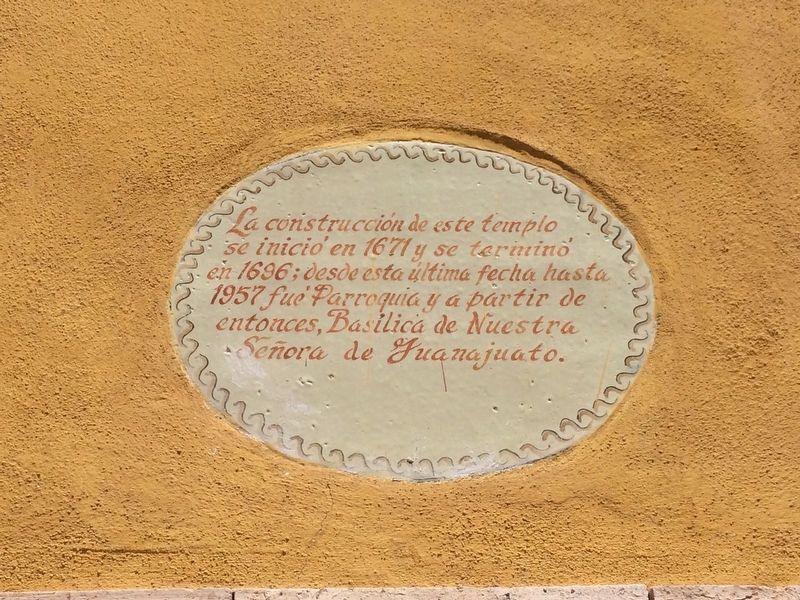 La construcción de este templo
se inició en 1671 y se terminó
en 1696; desde esta última fecha hasta
1957 fué Parroquia y a partir de
entonces, Basílica de Nuestra
Señora de Guanajuato.